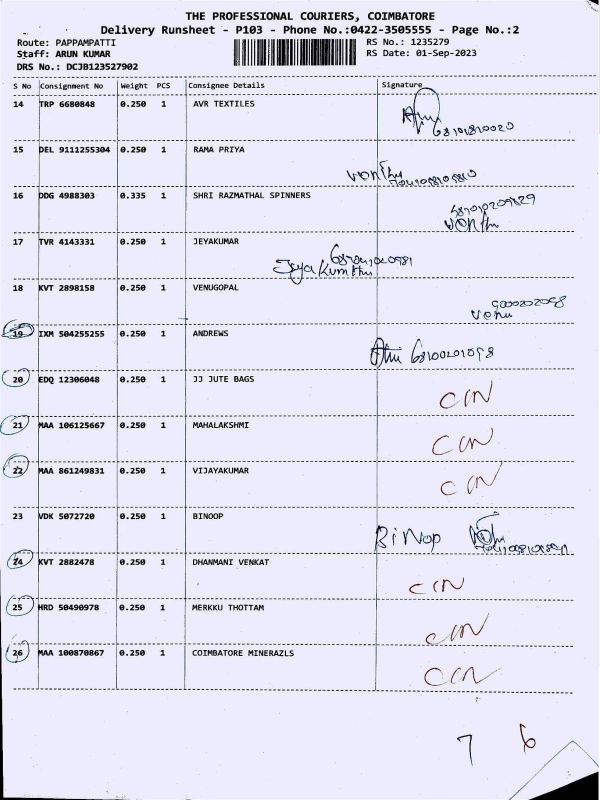 THE PROFESSIONAL COURIERS, COIMBATORE
Delivery Runsheet - P103 - Phone No.:0422-3505555 - Page No.:2
Route: PAPPAMPATTI RS No.: 1235279
Staff: ARUN KUMAR RS Date: 01-Sep-2023
DRS No.: DCJB123527902
S No Consignment No Weight PCS Consignee Details Signature
14 TRP 6680848 0.250 1 AVR TEXTILES
15 DEL 9111255304 0.250 1 RAMA PRIYA
16 DDG 4988303 0.335 1 SHRI RAZMATHAL SPINNERS
17 TVR 4143331 0.250 1 JEYAKUMAR
18 KVT 2898158 0.250 1 VENUGOPAL
19 IXM 504255255 0.250 1 ANDREWS
20 EDQ 12306048 0.250 1 JJ JUTE BAGS
21 MAA 106125667 0.250 1 MAHALAKSHMI
22 MAA 861249831 0.250 1 VIJAYAKUMAR
23 VDK 5072720 0.250 1 BINOOP BiNop
24 KVT 2882478 0.250 1 DHANMANI VENKAT
25 HRD 50490978 0.250 1 MERKKU THOTTAM
26 MAA 100870867 0.250 1 COIMBATORE MINERAZLS
7 6